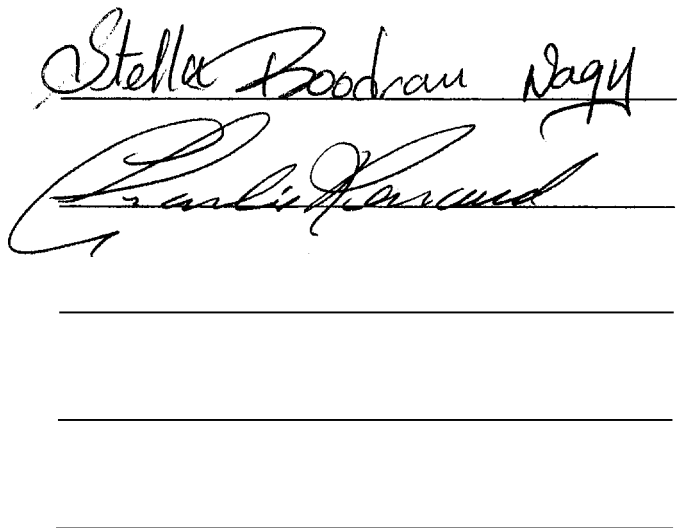 Stella Boodran Nagy
Charlie